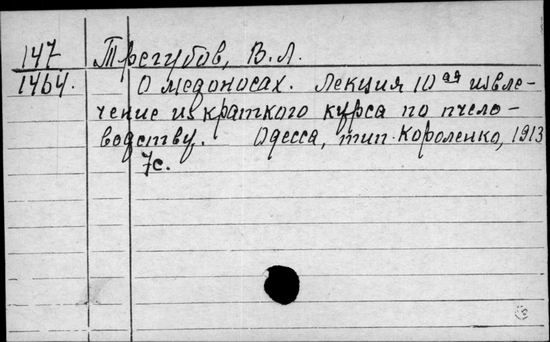 147 Трегубов, В.Л.
1464. О медоносах. Лекция 10ая извле-
чение из краткого курса по пчело-
водству. Одесса, тип. Короленко, 1913
7с.